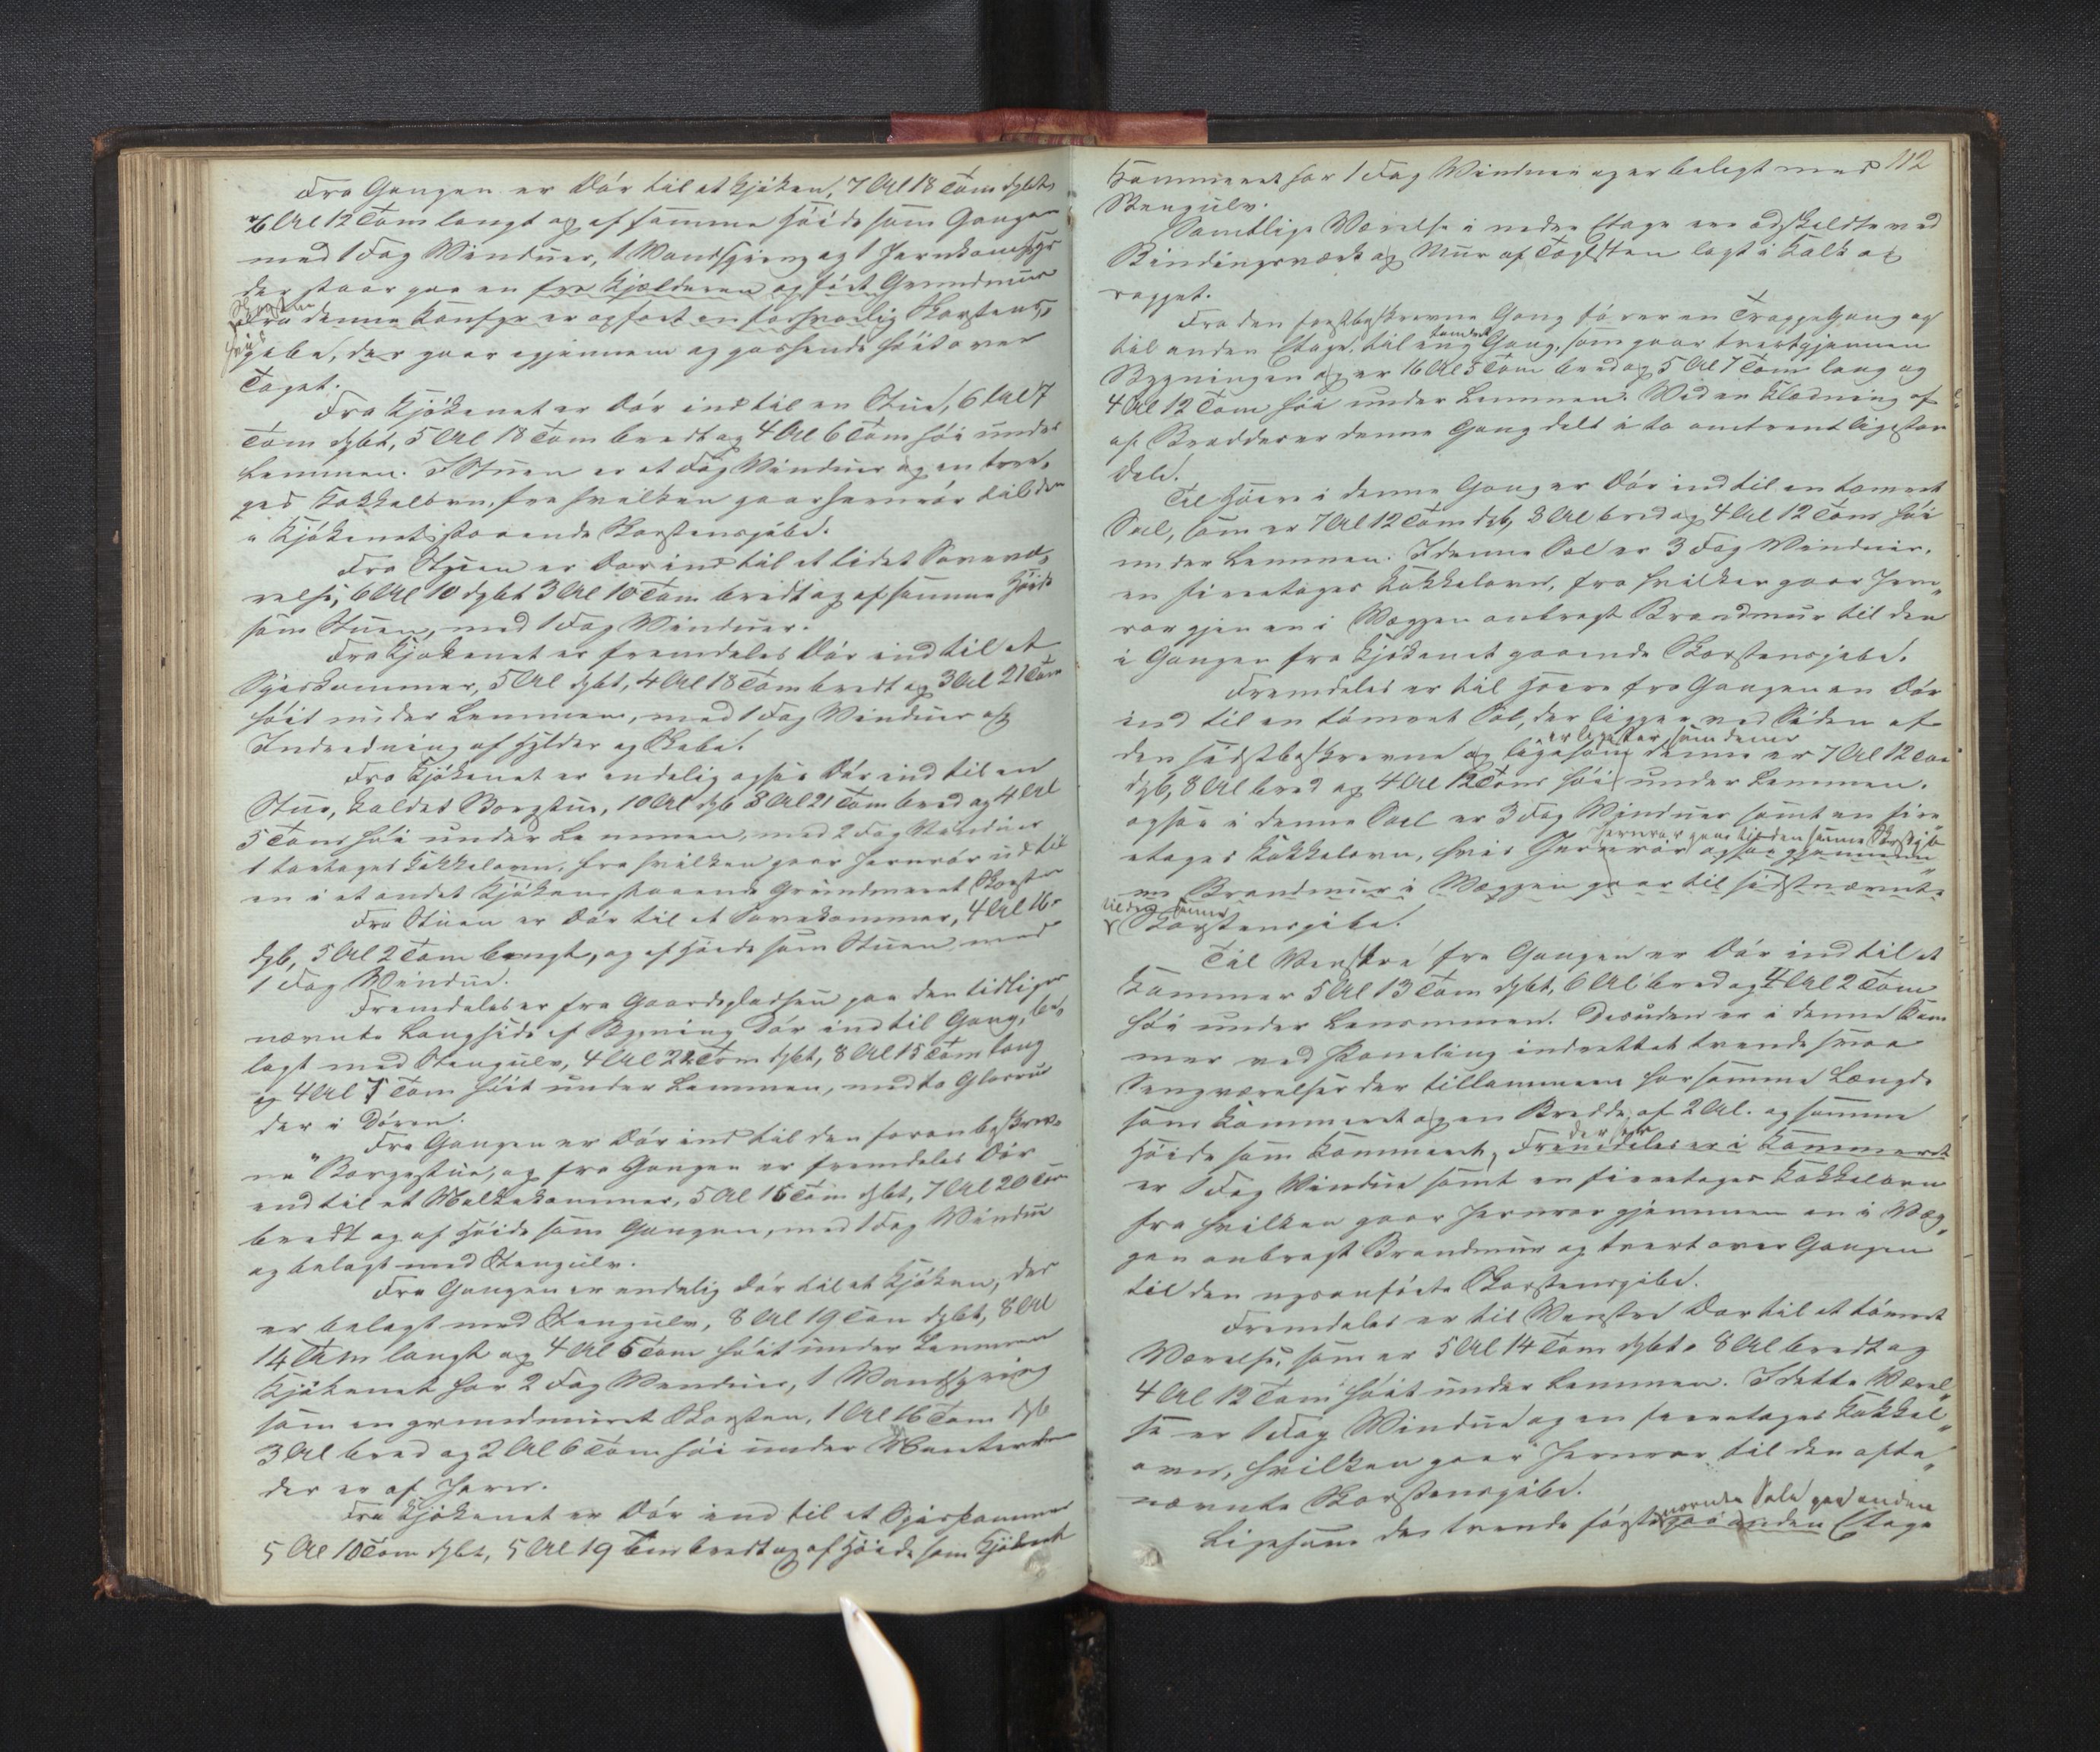 Fra Gangen er Dör til et Kjöken, 7 Al 18 Tom dybt,
6 Al 12 Tom langt og af samme Höide som Gangen
med 1 Fag Vinduer, 1 Vandspring og 1 Jernkomfyr
der staar paa en fra Kjælderen opfört Grundmuur
Fra denne Komfyr er opfört en forsvarlig Skorstens-
pibe, der gaar igjennem og passende höit over
Taget.
Fra Kjökenet er Dör ind til en Stue, 6 Al 7
Tom dybt, 5 Al 18 Tom bredt og 4 Al 6 Tom höi under
Lemmen. I Stuen er et Fag Vinduer og en toeta-
ges Kakkelovn, fra hvilken gaar Jernrör til den
i Kjökenet staaende Skorstenspibe.
Fra Stuen er Dör ind til et lidet Sovevæ-
relse, 6 Al 10 dybt 3 Al 10 Tom bredt og af samme Höide
som Stuen, med 1 Fag Vinduer.
Fra Kjökenet er fremdeles Dör ind til et
Spiskammer, 5 Al dybt, 4 Al 18 Tom bredt og 3 Al 21 Tom
höit under Lemmen, med 1 Fag Vinduer og
Indredning af Hylder og Skabe.
Fra Kjökenet er endelig ogsaa Dör ind til en
Stue, kaldet Borgstue, 10 Al dyb 8 Al 21 Tom bred og 4 Al
5 Tom höi under Lemmen, med 2 Fag Vinduer
1 toetages Kakkelovn, fra hvilken gaar Jernrör ud til
en i et andet Kjöken staaende grundmuret Skorsten
Fra Stuen er Dör til et Sovekammer, 4 Al 16
dyb, 5 Al 2 Tom langt, og af Höide som Stuen med
1 Fag Vindue.
Fremdeles er fra Gaardspladsen paa den tidligere
nævnte Langside af Bygning Dör ind til Gang, be-
lagt med Stengulv, 4 Al 22 Tom dybt, 8 Al 15 Tom lang
og 4 Al 7 Tom höit under Lemmen, med to Glasru
der i Dören.
Fra Gangen er Dör ind til den foran beskrev-
ne Borgestue, og fra Gangen er fremdeles Dör
ind til et Melkekammer, 5 Al 15 Tom dybt, 7 Al 20 Tom
bredt og af Höide som Gangen, med 1 Fag Vindue
og belagt med Stengulv.
Fra Gangen er endelig Dör til et Kjöken, der
er belagt med Stengulv, 8 Al 19 Tom dybt, 8 Al
14 Tom langt og 4 Al 5 Tom höit under Lemmen
Kjökenet har 2 Fag Vinduer, 1 Vandspring
som en grundmuret Skorsten, 1 Al 16 Tom dyb
3 Al bred og 2 Al 6 Tom höi under
der er af Jern.
Fra Kjökenet er Dör ind til et Spiskammer
5 Al 10 Tom dybt, 5 Al 19 Tom bredt og af Höide som Kjökenet
112
Kammeret har 1 Fag Vinduer og er belagt med
Stengulv.
Samtlige Værelse i nedre Etage ere adskildte ved
Bindingsværk og Muur af Taglsten lagt i Kalk og
rappet.
Fra den forstbeskrevne Gang förer en Trappegang op
til anden Etage, til en tömret Gang, som gaar tvertigjennem
Bygningen og er 16 Al 5 Tom bred og 5 Al 7 Tom lang og
4 Al 12 Tom höi under Lemmen. Ved en Klædning af
af Brædder er denne Gang delt i to omtrent ligestore
Dele.
Til Höire i denne Gang er Dör ind til en tömret
Sal, som er 7 Al 12 Tom dyb, 8 Al bred og 4 Al 12 Tom höi
under Lemmen. I denne Sal er 3 Fag Vinduer,
en fireetages Kakkelovn, fra hvilken gaar Jern-
rör gjen en i Væggen anbragt Brandmur til den
i Gangen fra Kjökenet gaaende Skorstenspibe.
Fremdeles er til Höire fra Gangen en Dör
ind til en tömret Sal, der ligger ved Siden af
er ligestor som denne
den sidstbeskrevne og ligesom denne er 7 Al 12 Tom
dyb, 8 Al bred og 4 Al 12 Tom höi under Lemmen.
ogsaa i denne Sal er 3 Fag Vinduer samt en fire-
Jernrör gaar til den samme Skorstpibe
etages Kakkelovn, hvis Jernrör ogsaa gjennem
en Brandmur i Væggen gaar til sidstnævnte
til den samme
Skorstenspibe.
Til Venstre fra Gangen er Dör ind til et
Kammer 5 Al 13 Tom dybt, 6 Al bred og 4 Al 2 Tom
höi under Lemmen. Desuden er i denne Kam
mer ved Paneling indrettet tvende smaa
Sengeværelser der tillsammen har samme Længde
som Kammeret og en Bredde af 2 Al. og samme
Höide som Kammeret, Fremdeles er i Kammeret
er 1 Fag Vindue samt en fireetages Kakkelovn
fra hvilken gaar Jernrör gjennem en i Væg-
gen anbragt Brandmur og tvert over Gangen
til den ogsaaförte Skorstenspibe.
Fremdeles er til Venstre Dör til et tömret
Værelse, som er 5 Al 14 Tom dybt, 8 Al bredt og
4 Al 12 Tom höit under Lemmen. I dette Værel-
se er 1 Fag Vindue og en fireetages Kakkel-
ovn, hvilken gaar Jernrör til den ofte-
nævnte Skorstenspibe.
nævnte Sale paa anden
Ligesom de tvende först paa anden Etage